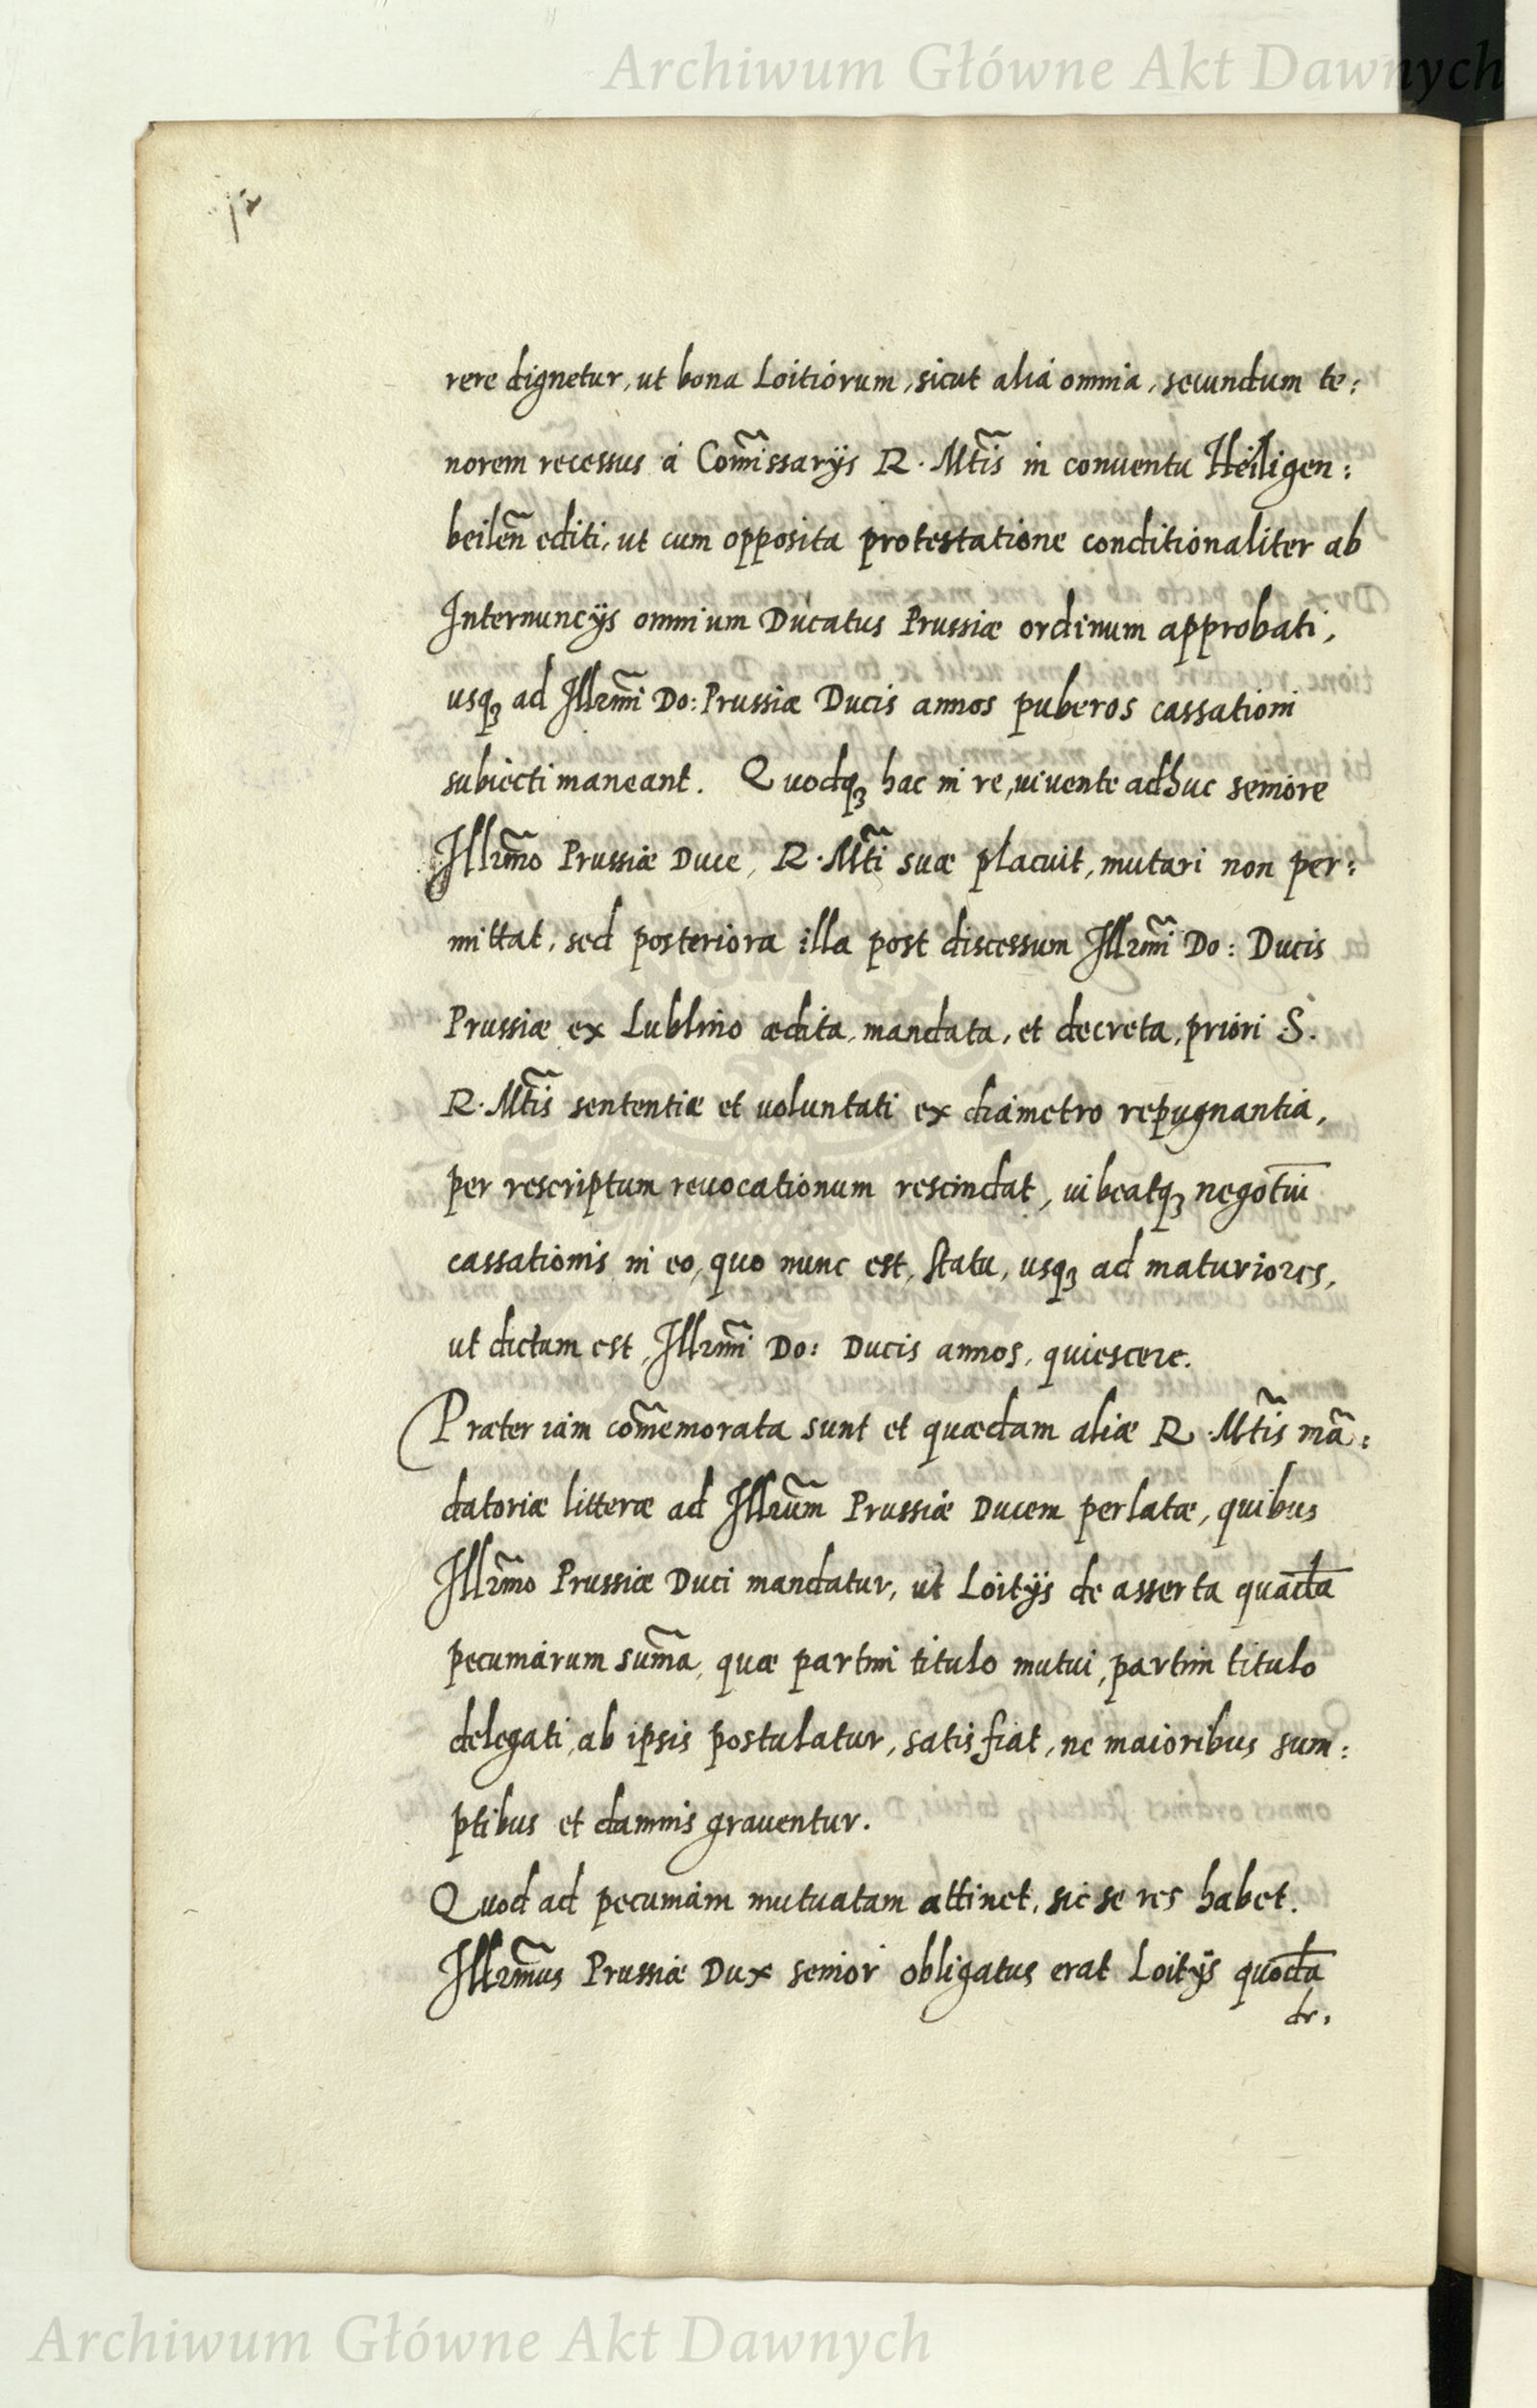 Archiwum Główne Akt Dawnych
rere dignetur, ut bona Loitiorum, sicut alia omnia, secundum te:
norem recessus à Com̃issarijs R. Mt̃is in conuentu Heiligen:
beileñ editi, ut cum opposita protestatione conditionaliter ab
Internuncijs omnium Ducatus Prussiæ ordinum approbati,
usqꝫ ad Illr̃mi Do: Prussiæ Ducis annos puberos cassationi
subiecti maneant. Quodqꝫ hac in re, uiuente adhuc seniore
Illr̃mo Prussiæ Duce, R. Mt̃i suæ placuit, mutari non per:
mittat, sed posteriora illa post discessum Illr̃mi Do: Ducis
Prussiæ ex Lublino ædita, mandata, et decreta, priori S.
R. Mt̃is sententiæ et uoluntati ex diametro repugnantia,
per rescriptum reuocationum rescindat, iubeatqꝫ negotiū
cassationis in eo, quo nunc est, statu, usqꝫ ad maturiores,
ut dictum est, Illr̃mi Do: Ducis annos, quiescere.
Præter iam com̃emorata sunt et quædam aliæ R. Mt̃is mã:
datoriæ litteræ ad Illr̃um Prussiæ Ducem perlatæ, quibus
Illr̃mo Prussiæ Duci mandatur, ut Loitijs de asserta quadā
pecuniarum sum̃a, quæ partim titulo mutui, partim titulo
delegati, ab ipsis postulatur, satisfiat, ne maioribus sum:
ptibus et damnis grauentur.
Quod ad pecuniam mutuatam attinet, sic se res habet.
Illr̃mus Prussiæ Dux senior obligatus erat Loitijs quodā
de.
Archiwum Główne Akt Dawnych